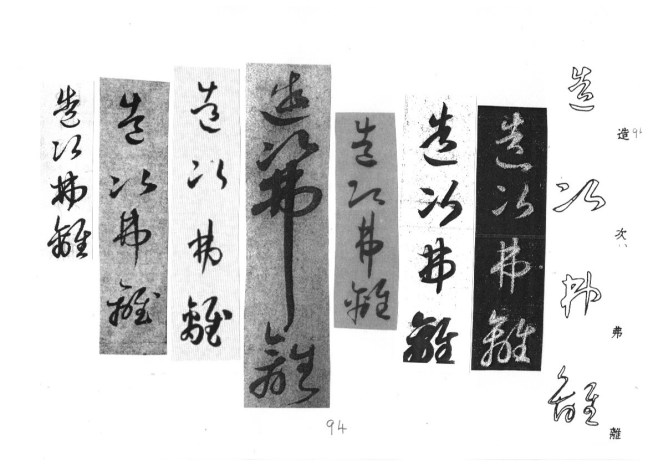 造次弗離
造次弗離
造次弗離
造次弗離
造次弗離
造次弗離
造次弗離
造次弗離
造 94
次
弗
離
94